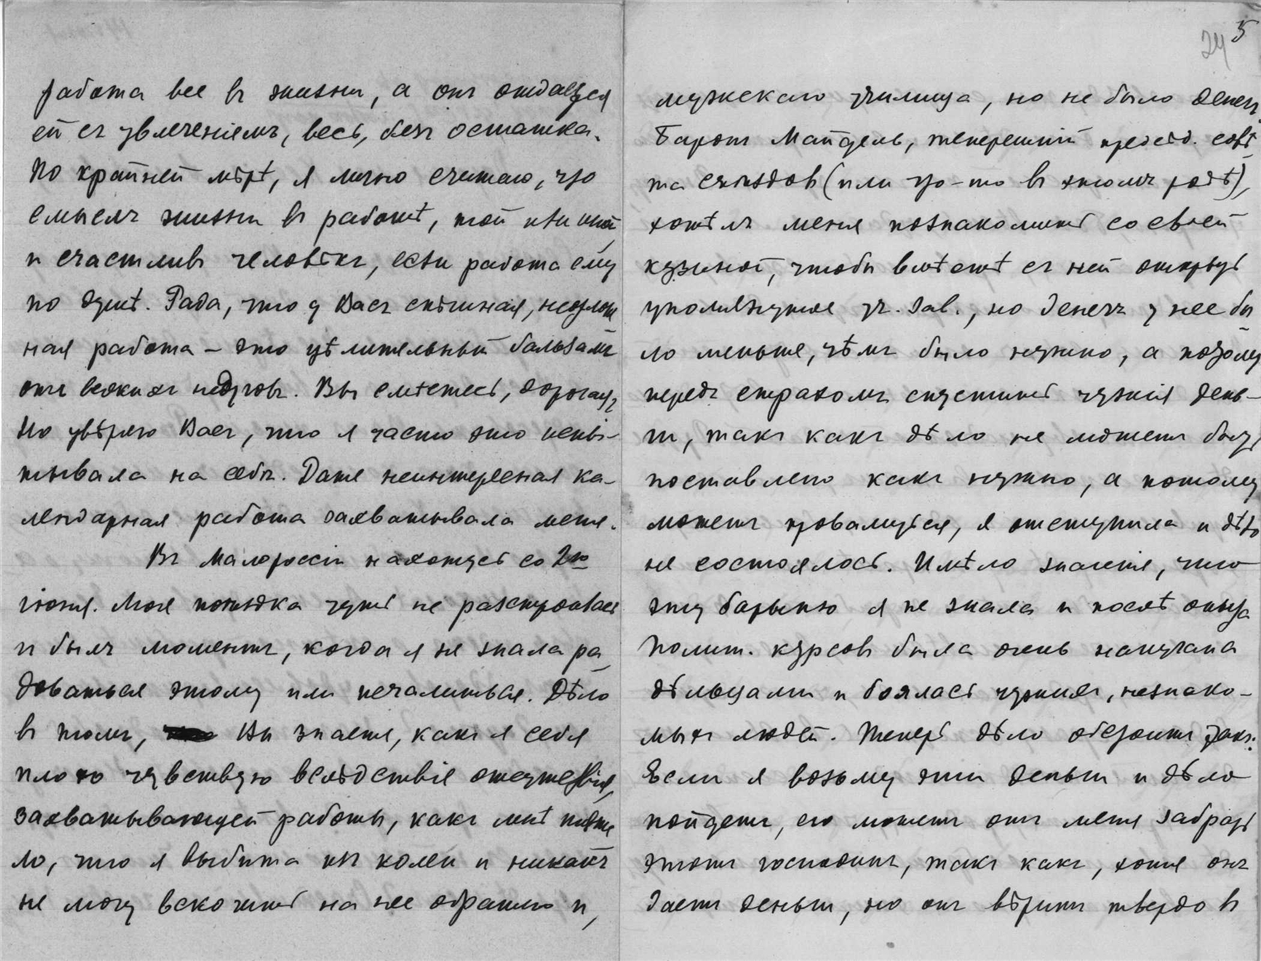 работа все въ жизни, а онъ отдается
ей съ увлеченіемъ, весь, безъ остатка.
По крайней мѣрѣ, я лично считаю, что
смыслъ жизни въ работѣ, той или иной,
и счастливъ человѣкъ, если работа ему
по душѣ. Рада, что у Васъ спѣшная,
ная работа – это цѣлительный бальзамъ
отъ всякихъ недуговъ. Вы смѣетесь, дорогая?
Но увѣряю Васъ, что я часто это испы-
тывала на себѣ. Даже неинтересная ка-
лендарная работа захватывала меня.
Въ Малороссіи нахожусь со 2го
іюня. Моя поѣздка чуть не разстроилась
и былъ моментъ, когда я не знала ра
доваться этому или печалиться. Дѣло
въ томъ, Вы знаете, какъ я себя
плохо чувствую вслѣдствіе отсутствія,
захватывающей работы, какъ мнѣ тяже
ло, что я выбита изъ колеи и никакъ
не могу вскочить на нее обратно и,
24 5
мужского училища, но не было денегъ.
Баронъ Майдель, теперешній предсѣд. совѣ
та съѣздовъ (или что-то въ этомъ родѣ),
хотѣлъ меня познакомить со своей
кузиной, чтобы вмѣстѣ съ ней открыть
упомянутое уч. зав., но денегъ у нее бы
ло меньше, чѣмъ было нужно, а потому
передъ страхомъ спустить чужія день-
ги, такъ какъ дѣло не можетъ быть
поставлено какъ нужно, а потому
можетъ провалиться, я отступила и дѣло
не состоялось. Имѣло значеніе, что
эту барыню я не знала и послѣ опыта
Полит. курсовъ была очень напугана
дѣльцами и боялась чужихъ, незнако-
мыхъ людей. Теперь дѣло обстоитъ такъ:
Если я возьму эти деньги и дѣло
пойдетъ, его можетъ отъ меня забрать
этотъ господинъ, такъ какъ, хотя онъ
даетъ деньги, но онъ вѣритъ твердо въ